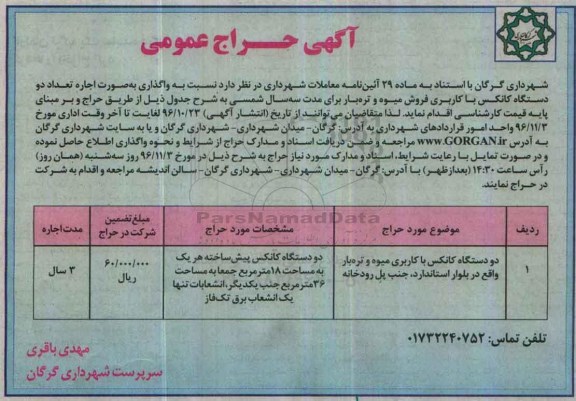 آگهی حـــراج عمومی
شهرداری گرگان با استناد به ماده ۲۹ آئین‌نامه معاملات شهرداری در نظر دارد نسبت به واگذاری به‌صورت اجاره تعداد دو
دستگاه کانکس با کاربری فروش میوه و تره‌بار برای مدت سه‌سال شمسی به شرح جدول ذیل از طریق حراج و بر مبنای
پایه قیمت کارشناسی اقدام نماید. لذا متقاضیان می‌توانند از تاریخ (انتشار آگهی) ۹۶/۱۰/۲۳ لغایت تا آخر وقت اداری مورخ
۹۶/۱۱/۲ واحد امور قراردادهای شهرداری به آدرس گرگان - میدان شهرداری- شهرداری گرگان و یا به سایت شهرداری گرگان
به آدرس www.GORGAN.ir مراجعه و نسبت به دریافت اسناد و مدارک حراج از شرایط و نحوه واگذاری اطلاع حاصل نموده
و در صورت تمایل با رعایت شرایط، اسناد و مدارک مورد نیاز حراج به شرح ذیل در مورخ ۹۶/۱۱/۳ روز سه‌شنبه (همان روز)
رأس ساعت ۱۴:۳۰ (بعدازظهر) با آدرس: گرگان - میدان شهرداری- شهرداری گرگان- سالن اندیشه مراجعه و اقدام به شرکت
در حراج نمایند.
ردیف موضوع مورد حراج مشخصات مورد حراج مبلغ تضمین شرکت در حراج مدت اجاره
۱ دو دستگاه کانکس با کاربری میوه و تره‌بار
واقع در بلوار استاندارد، جنب پل رودخانه
دو دستگاه کانکس پیش‌ساخته هر یک
به مساحت ۱۸مترمربع جمعا به مساحت
۳۶مترمربع جنب یکدیگر، انشعابات تنها
یک انشعاب برق تک‌فاز
۶۰/۰۰۰/۰۰۰
ریال
۳ سال
ParsNamadData
تلفن تماس: ۰۱۷۳۲۲۴۰۷۵۲
مهدی باقری
سرپرست شهرداری گرگان